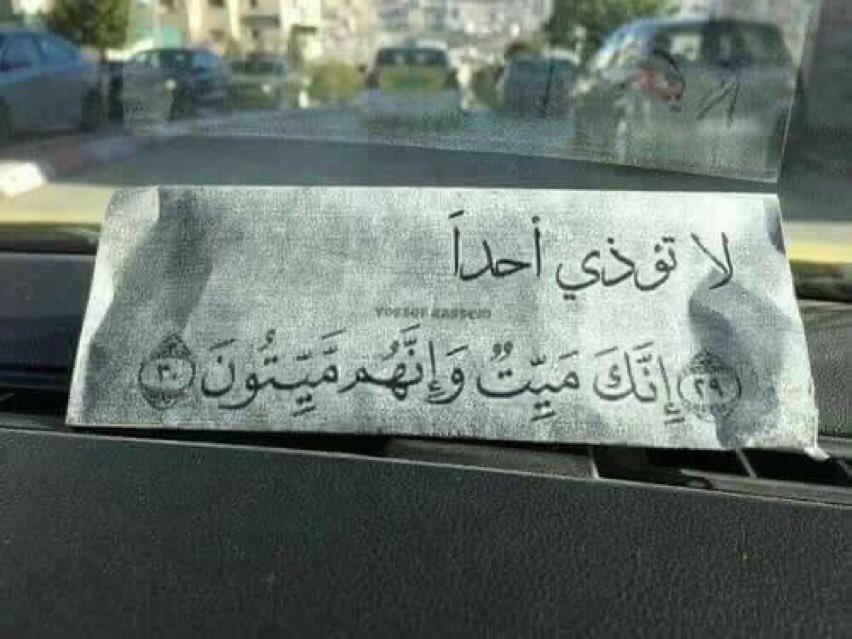 لا تؤذي أحداً
YOSSOF KASSEM
﴿٢٩﴾ إِنَّكَ مَيِّتٌ وَإِنَّهُم مَّيِّتُونَ ﴿٣٠﴾